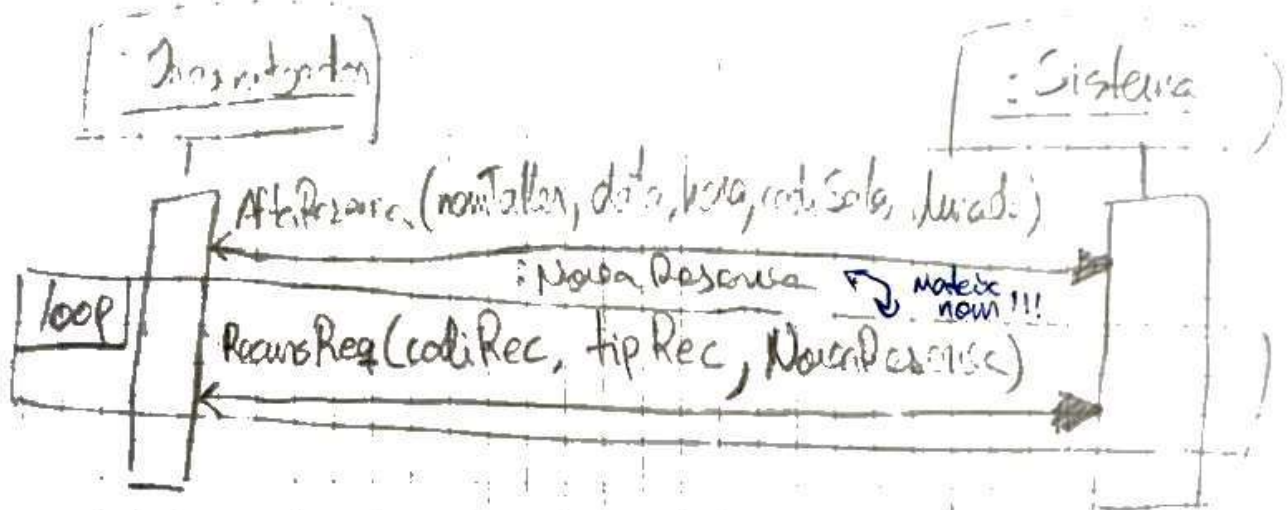 : Sistema
(nomTaller, data, hora, codiSala, durada)
: NovaReserva
mateix
nom!!!
loop
RecursReq(codiRec, tipRec, NovaReserva)